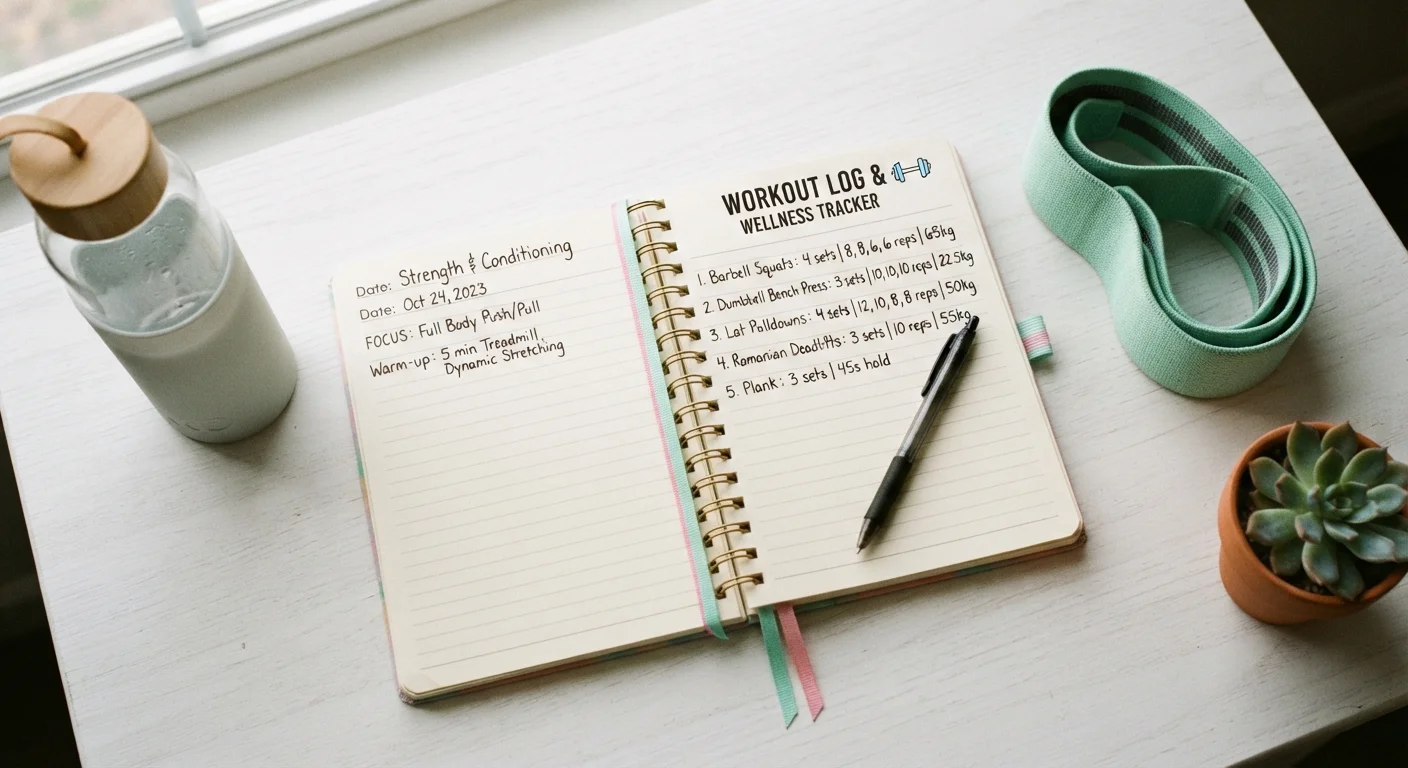 Date: Strength & Conditioning
Date: Oct 24, 2023
FOCUS: Full Body Push/Pull
Warm-up: 5 min Treadmill,
Dynamic Stretching
WORKOUT LOG &
WELLNESS TRACKER
1. Barbell Squats: 4 sets | 8, 8, 6, 6 reps | 65kg
2. Dumbbell Bench Press: 3 sets | 10, 10, 10 reps | 22.5kg
3. Lat Pulldowns: 4 sets | 12, 10, 8, 8 reps | 50kg
4. Romanian Deadlifts: 3 sets | 10 reps | 55kg
5. Plank: 3 sets | 45s hold